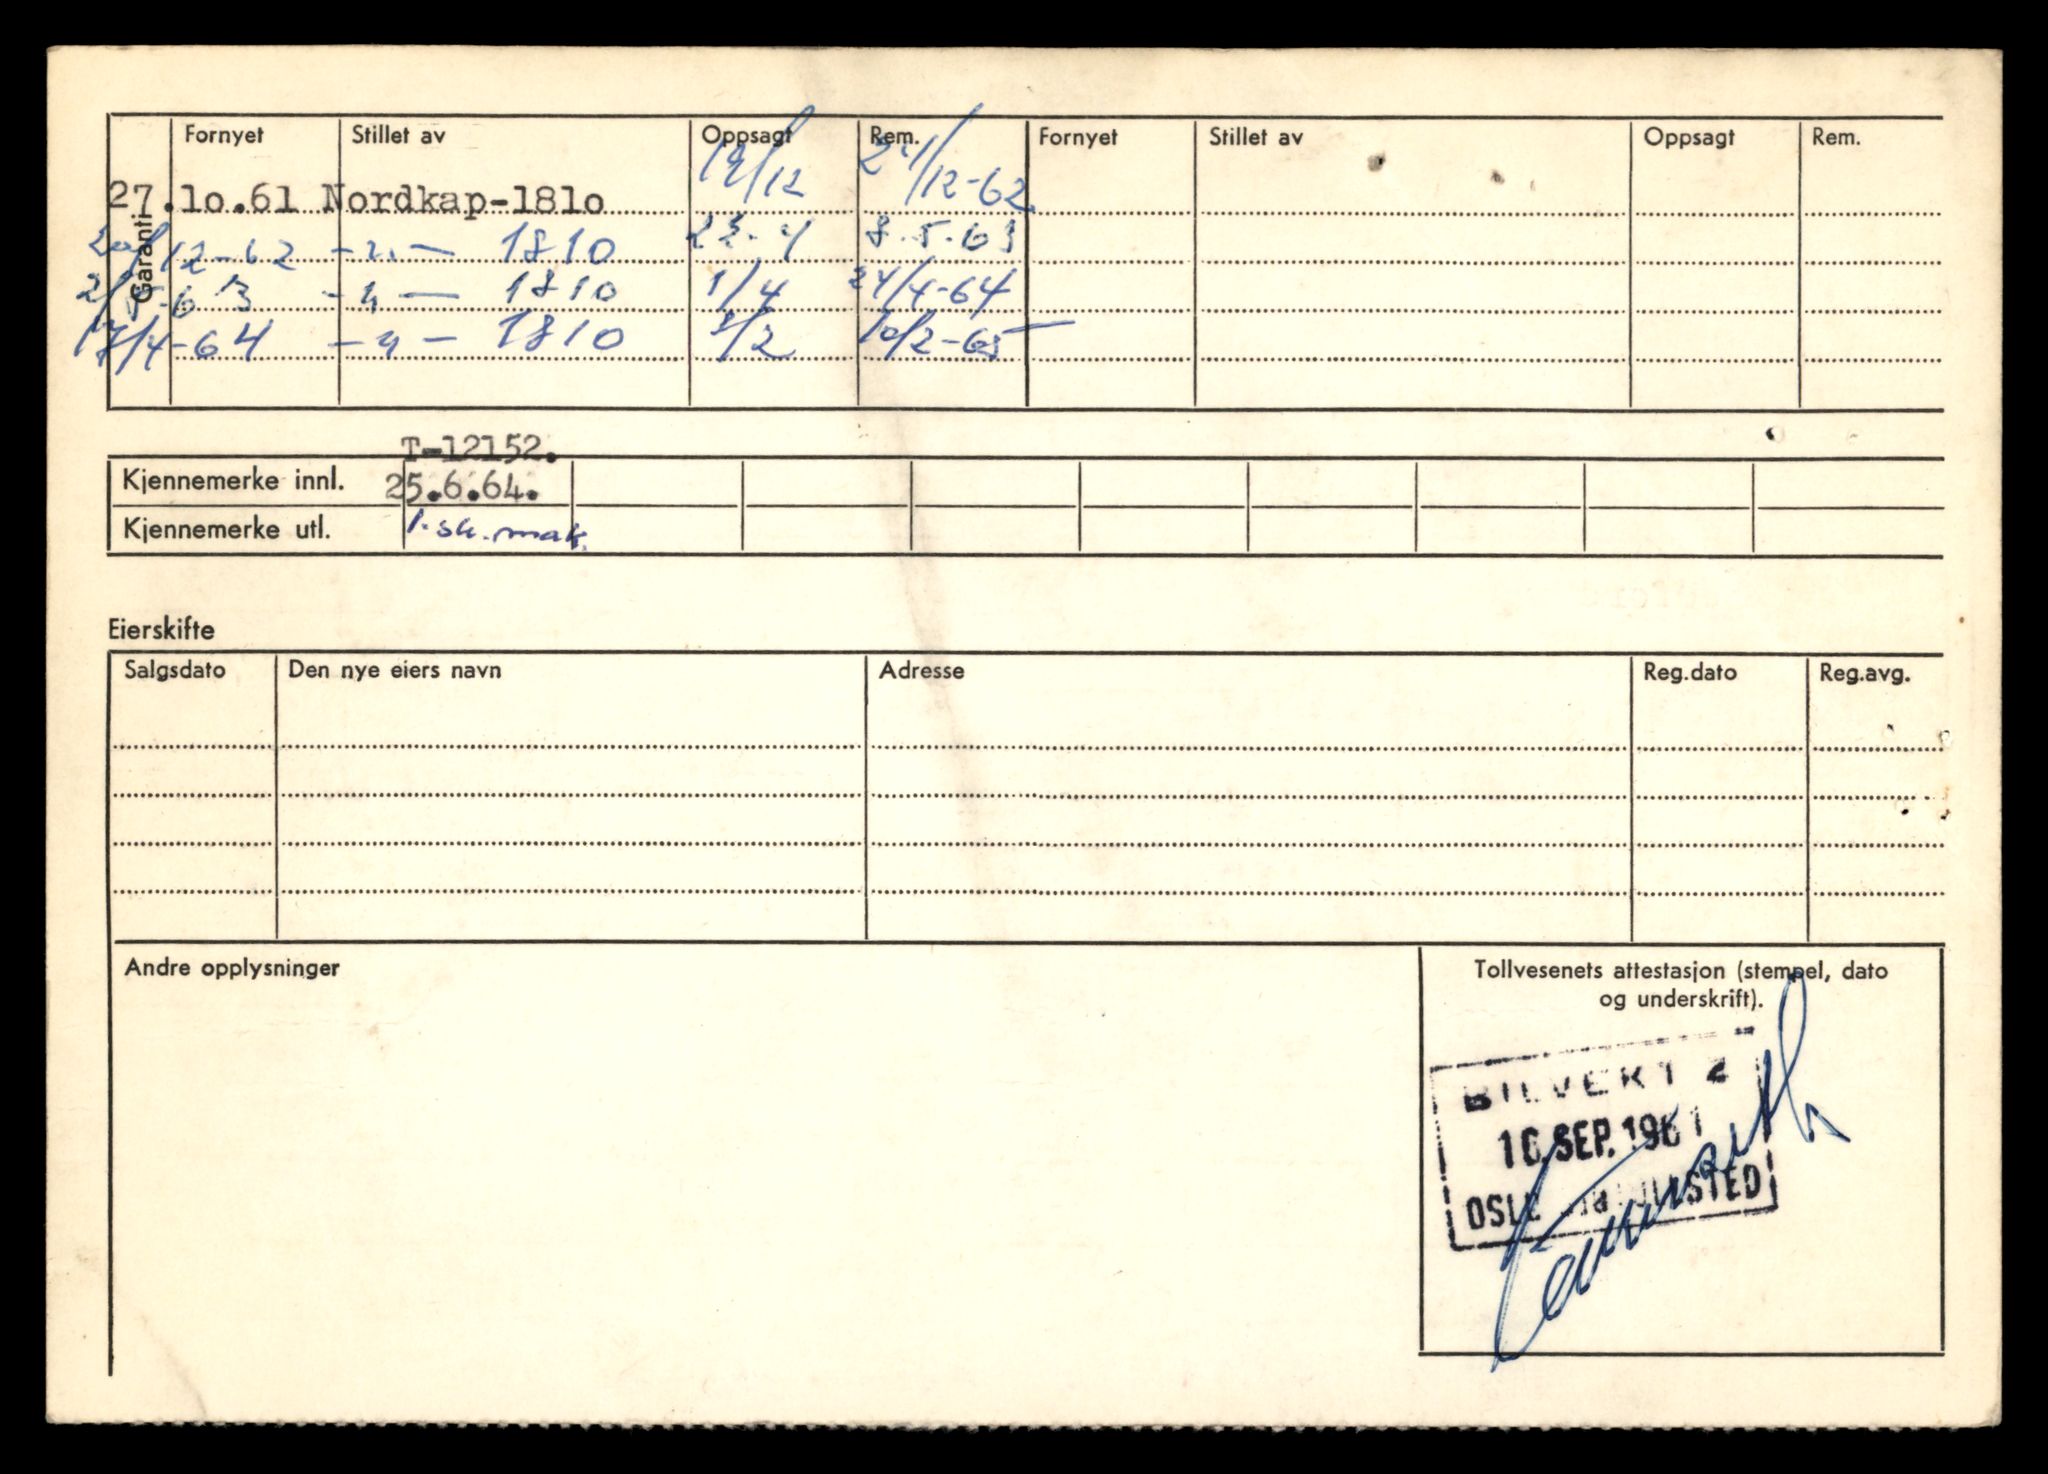 Garanti Fornyet Stillet av Oppsagt Rem. Fornyet Stillet av Oppsagt Rem.
27.1o.61 Nordkap-181o 19/12 24/12-62
20/12-62 -"- 1810 23.4 8.5.63
2/5-63 -"- 1810 1/4 24/4-64
17/4-64 -"- 1810 /2 10/2-65
T-12152.
Kjennemerke innl. 25.6.64.
Kjennemerke utl.
Eierskifte
Salgsdato Den nye eiers navn Adresse Reg.dato Reg.avg.
Andre opplysninger
Tollvesenets attestasjon (stempel, dato
og underskrift).
BILVERT 2
SEP. 1961